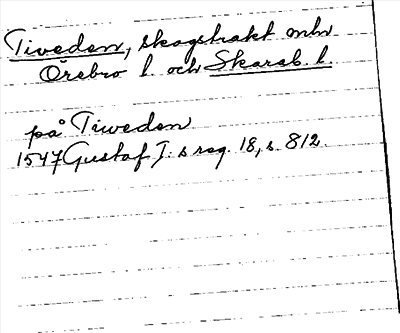 Tiveden, skogstrakt mln
Örebro l. och Skarab. l.
på Tiweden
1547 Gustaf I:s reg. 18, s. 812.